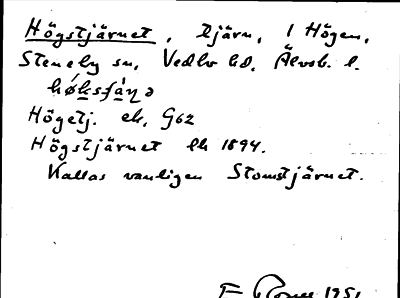 Högstjärnet, tjärn, i Högen,
Steneby sn, Vedbo hd, Älvsb. l.
Högetj. ek, G62
Högstjärnet lk 1894.
Kallas vanligen Stomstjärnet.
1951